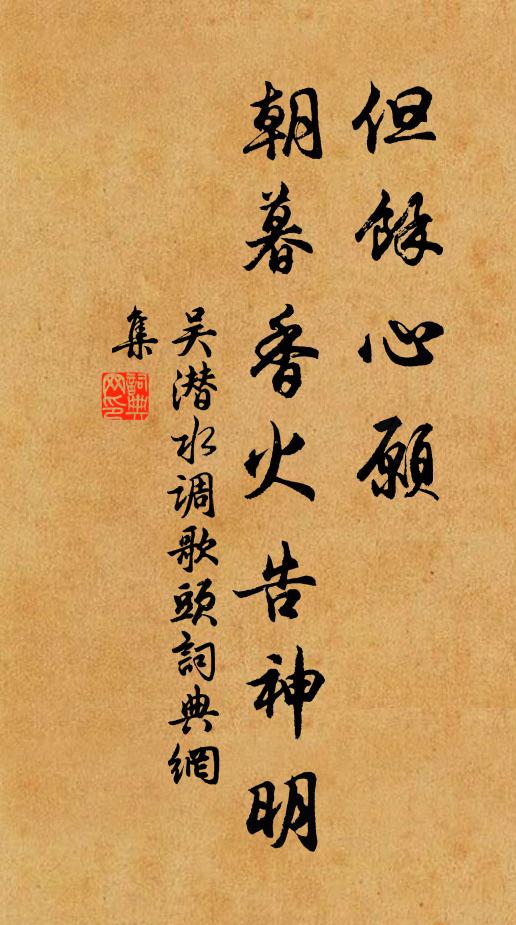 但餘心願
朝暮香火告神明
吴潜水调歌頭詞典網
集
詞典网印